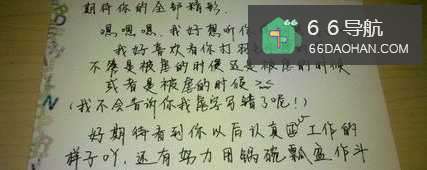 期待你的全部精彩.
嘿嘿嘿, 我好想听你
我好喜欢看你打羽
不管是被虐的时候还是被虐的时候
或者是被虐的时候
(我不会告诉你我虐字写错了呢!)
好期待看到你以后认真画工作的
样子吖, 还有努力用锅碗瓢盆作斗
66导航
66DAOHAN.COM